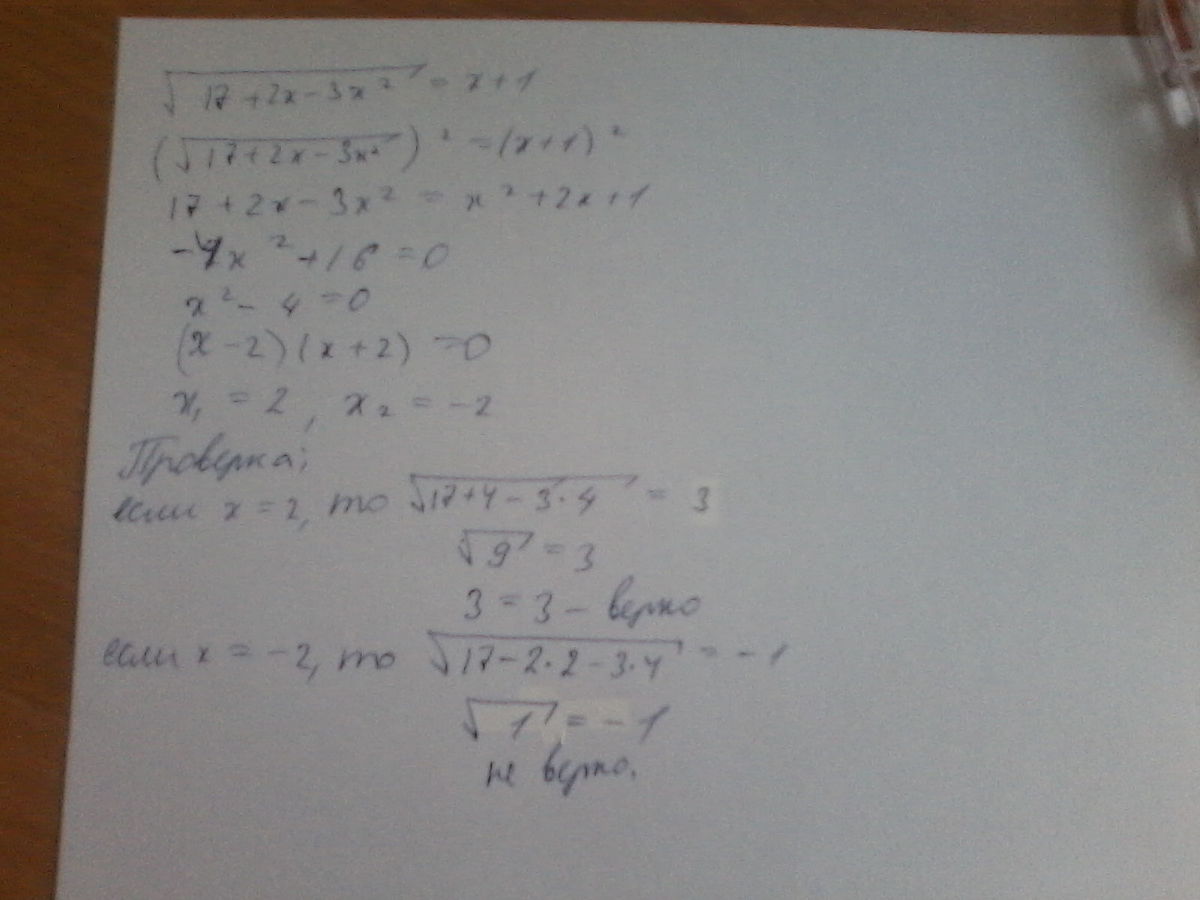 √17+2x-3x² = x+1
(√17+2x-3x²)² = (x+1)²
17+2x-3x² = x²+2x+1
-4x²+16=0
x²-4=0
(x-2)(x+2)=0
x₁=2, x₂=-2
Проверка:
если x=2, то √17+4-3·4 = 3
√9 = 3
3=3 - верно
если x=-2, то √17-2·2-3·4 = -1
√1 = -1
не верно.